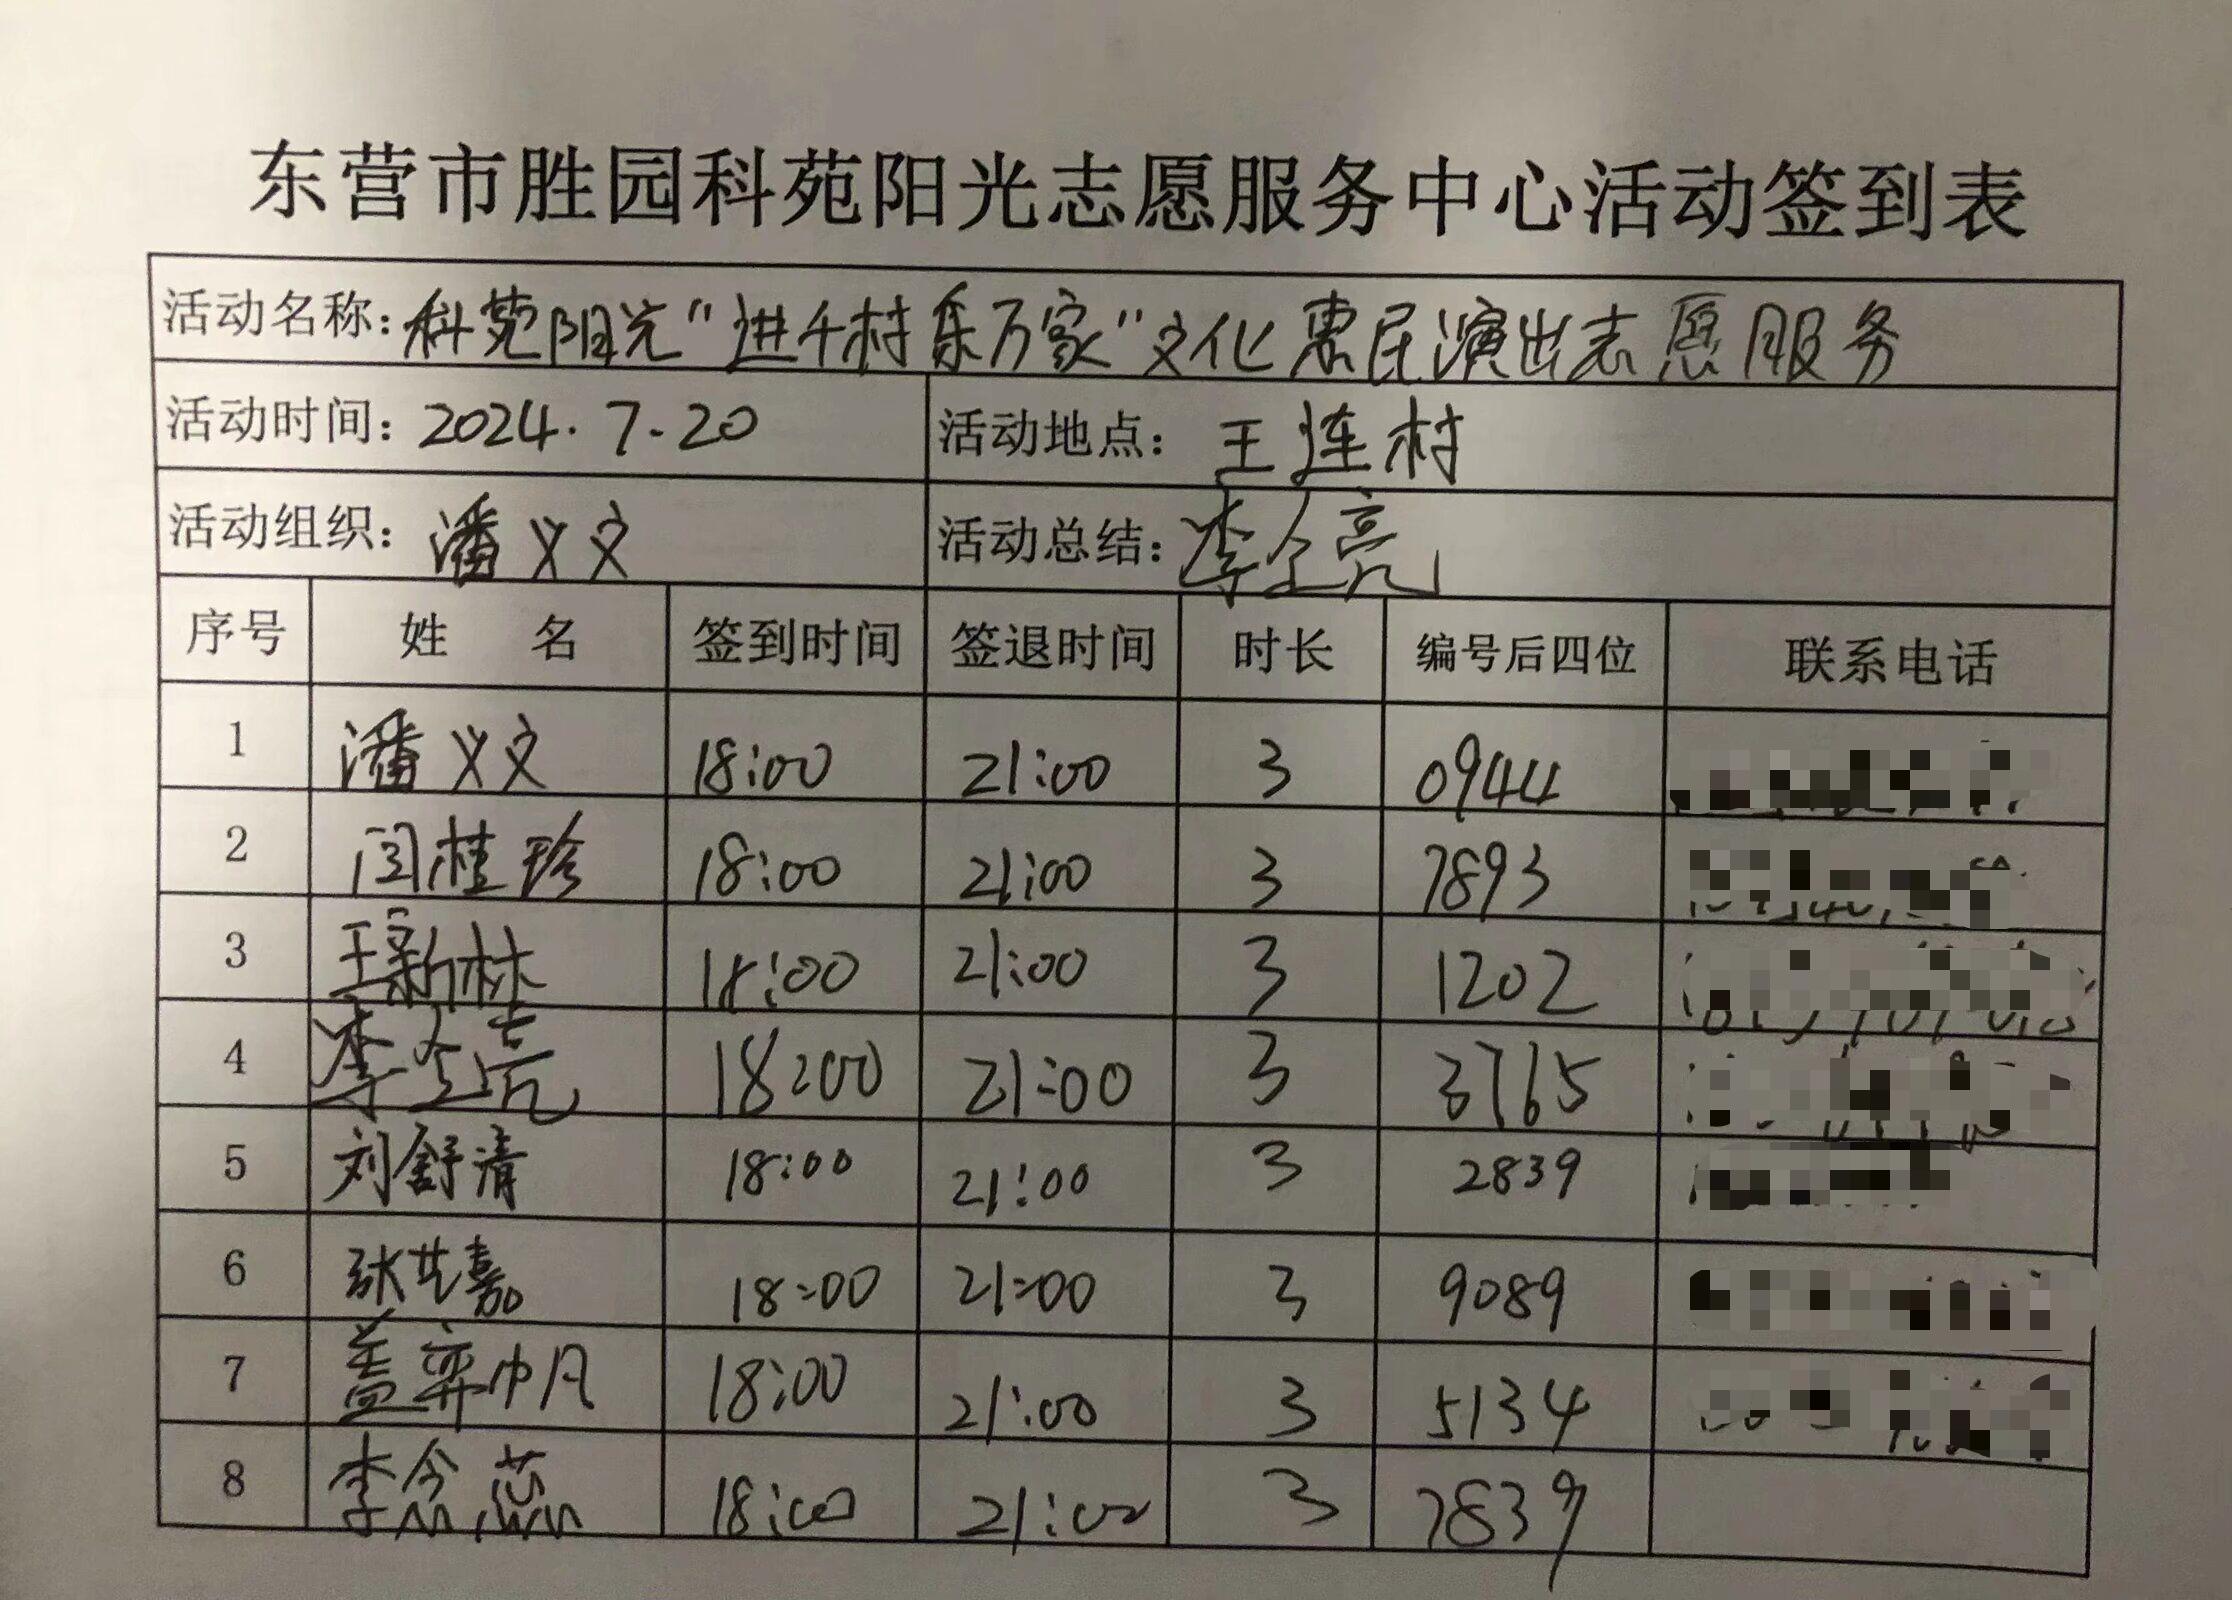 东营市胜园科苑阳光志愿服务中心活动签到表
活动名称：科苑阳光"进千村乐万家"文化惠民演出志愿服务
活动时间：2024.7.20 活动地点：王连村
活动组织：潘义文 活动总结：李全亮
序号 姓 名 签到时间 签退时间 时长 编号后四位 联系电话
1 潘义文 18:00 21:00 3 0944
2 闫桂珍 18:00 21:00 3 7893
3 王新林 18:00 21:00 3 1202
4 李全亮 18:00 21:00 3 3765
5 刘舒清 18:00 21:00 3 2839
6 张艺嘉 18:00 21:00 3 9089
7 盖弈帆 18:00 21:00 3 5134
8 李 蕊 18:00 21:00 3 7839